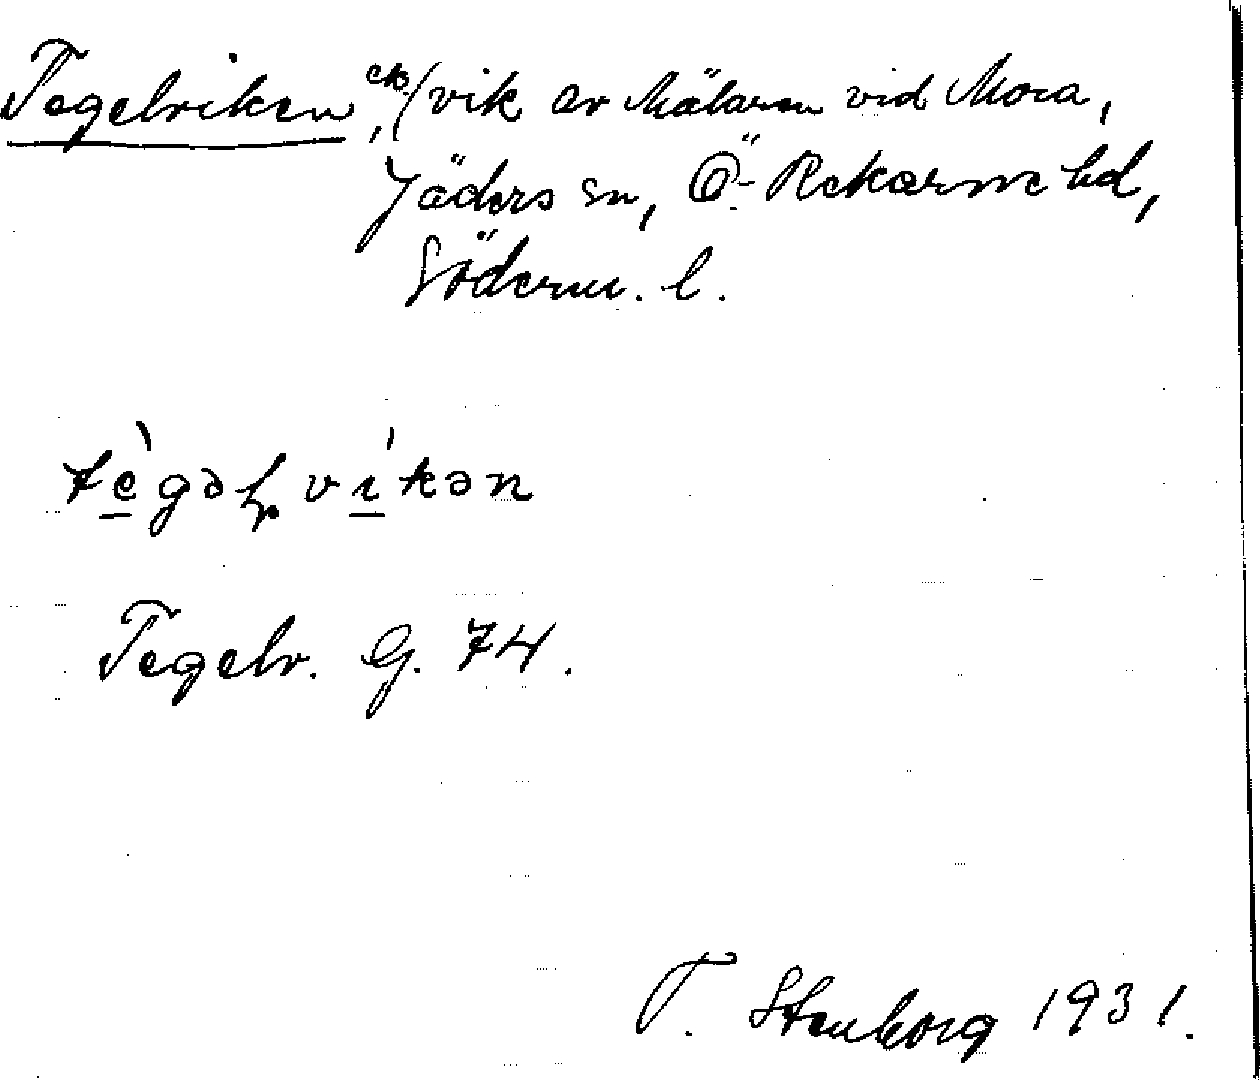 Tegelviken, ek. (vik av Mälaren vid Mora,
Jäders sn, Ö. Rekarne hd,
Söderm. l.
tègəl víkən
Tegelv. G. 74.
T. Stenborg 1931.